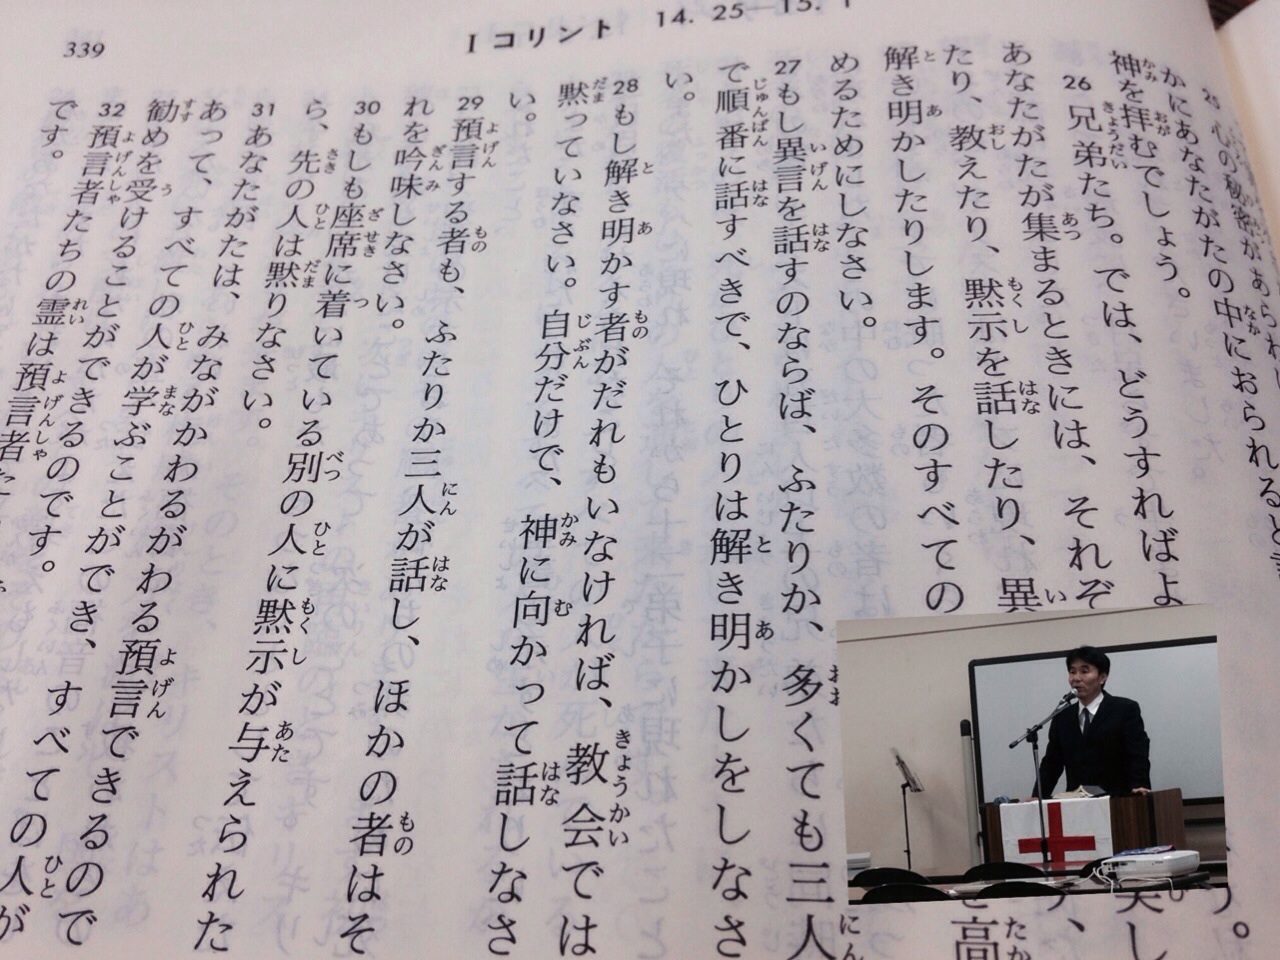 339
Ⅰコリント 14. 25—15. 1
かにあなたがたの中におられると言
神を拝むでしょう。
26 兄弟たち。では、どうすればよ
あなたがたが集まるときには、それぞ
たり、教えたり、黙示を話したり、異
解き明かしたりします。そのすべての
高
めるためにしなさい。
27 もし異言を話すのならば、ふたりか、多くても三人
で順番に話すべきで、ひとりは解き明かしをしなさ
い。
28 もし解き明かす者がだれもいなければ、教会では
黙っていなさい。自分だけで、神に向かって話しなさ
い。
29 預言する者も、ふたりか三人が話し、ほかの者はそ
れを吟味しなさい。
30 もしも座席に着いている別の人に黙示が与えられた
ら、先の人は黙りなさい。
31 あなたがたは、みながかわるがわる預言できるので
あって、すべての人が学ぶことができ、すべての人が
勧めを受けることができるのです。
32 預言者たちの霊は預言者た
です。